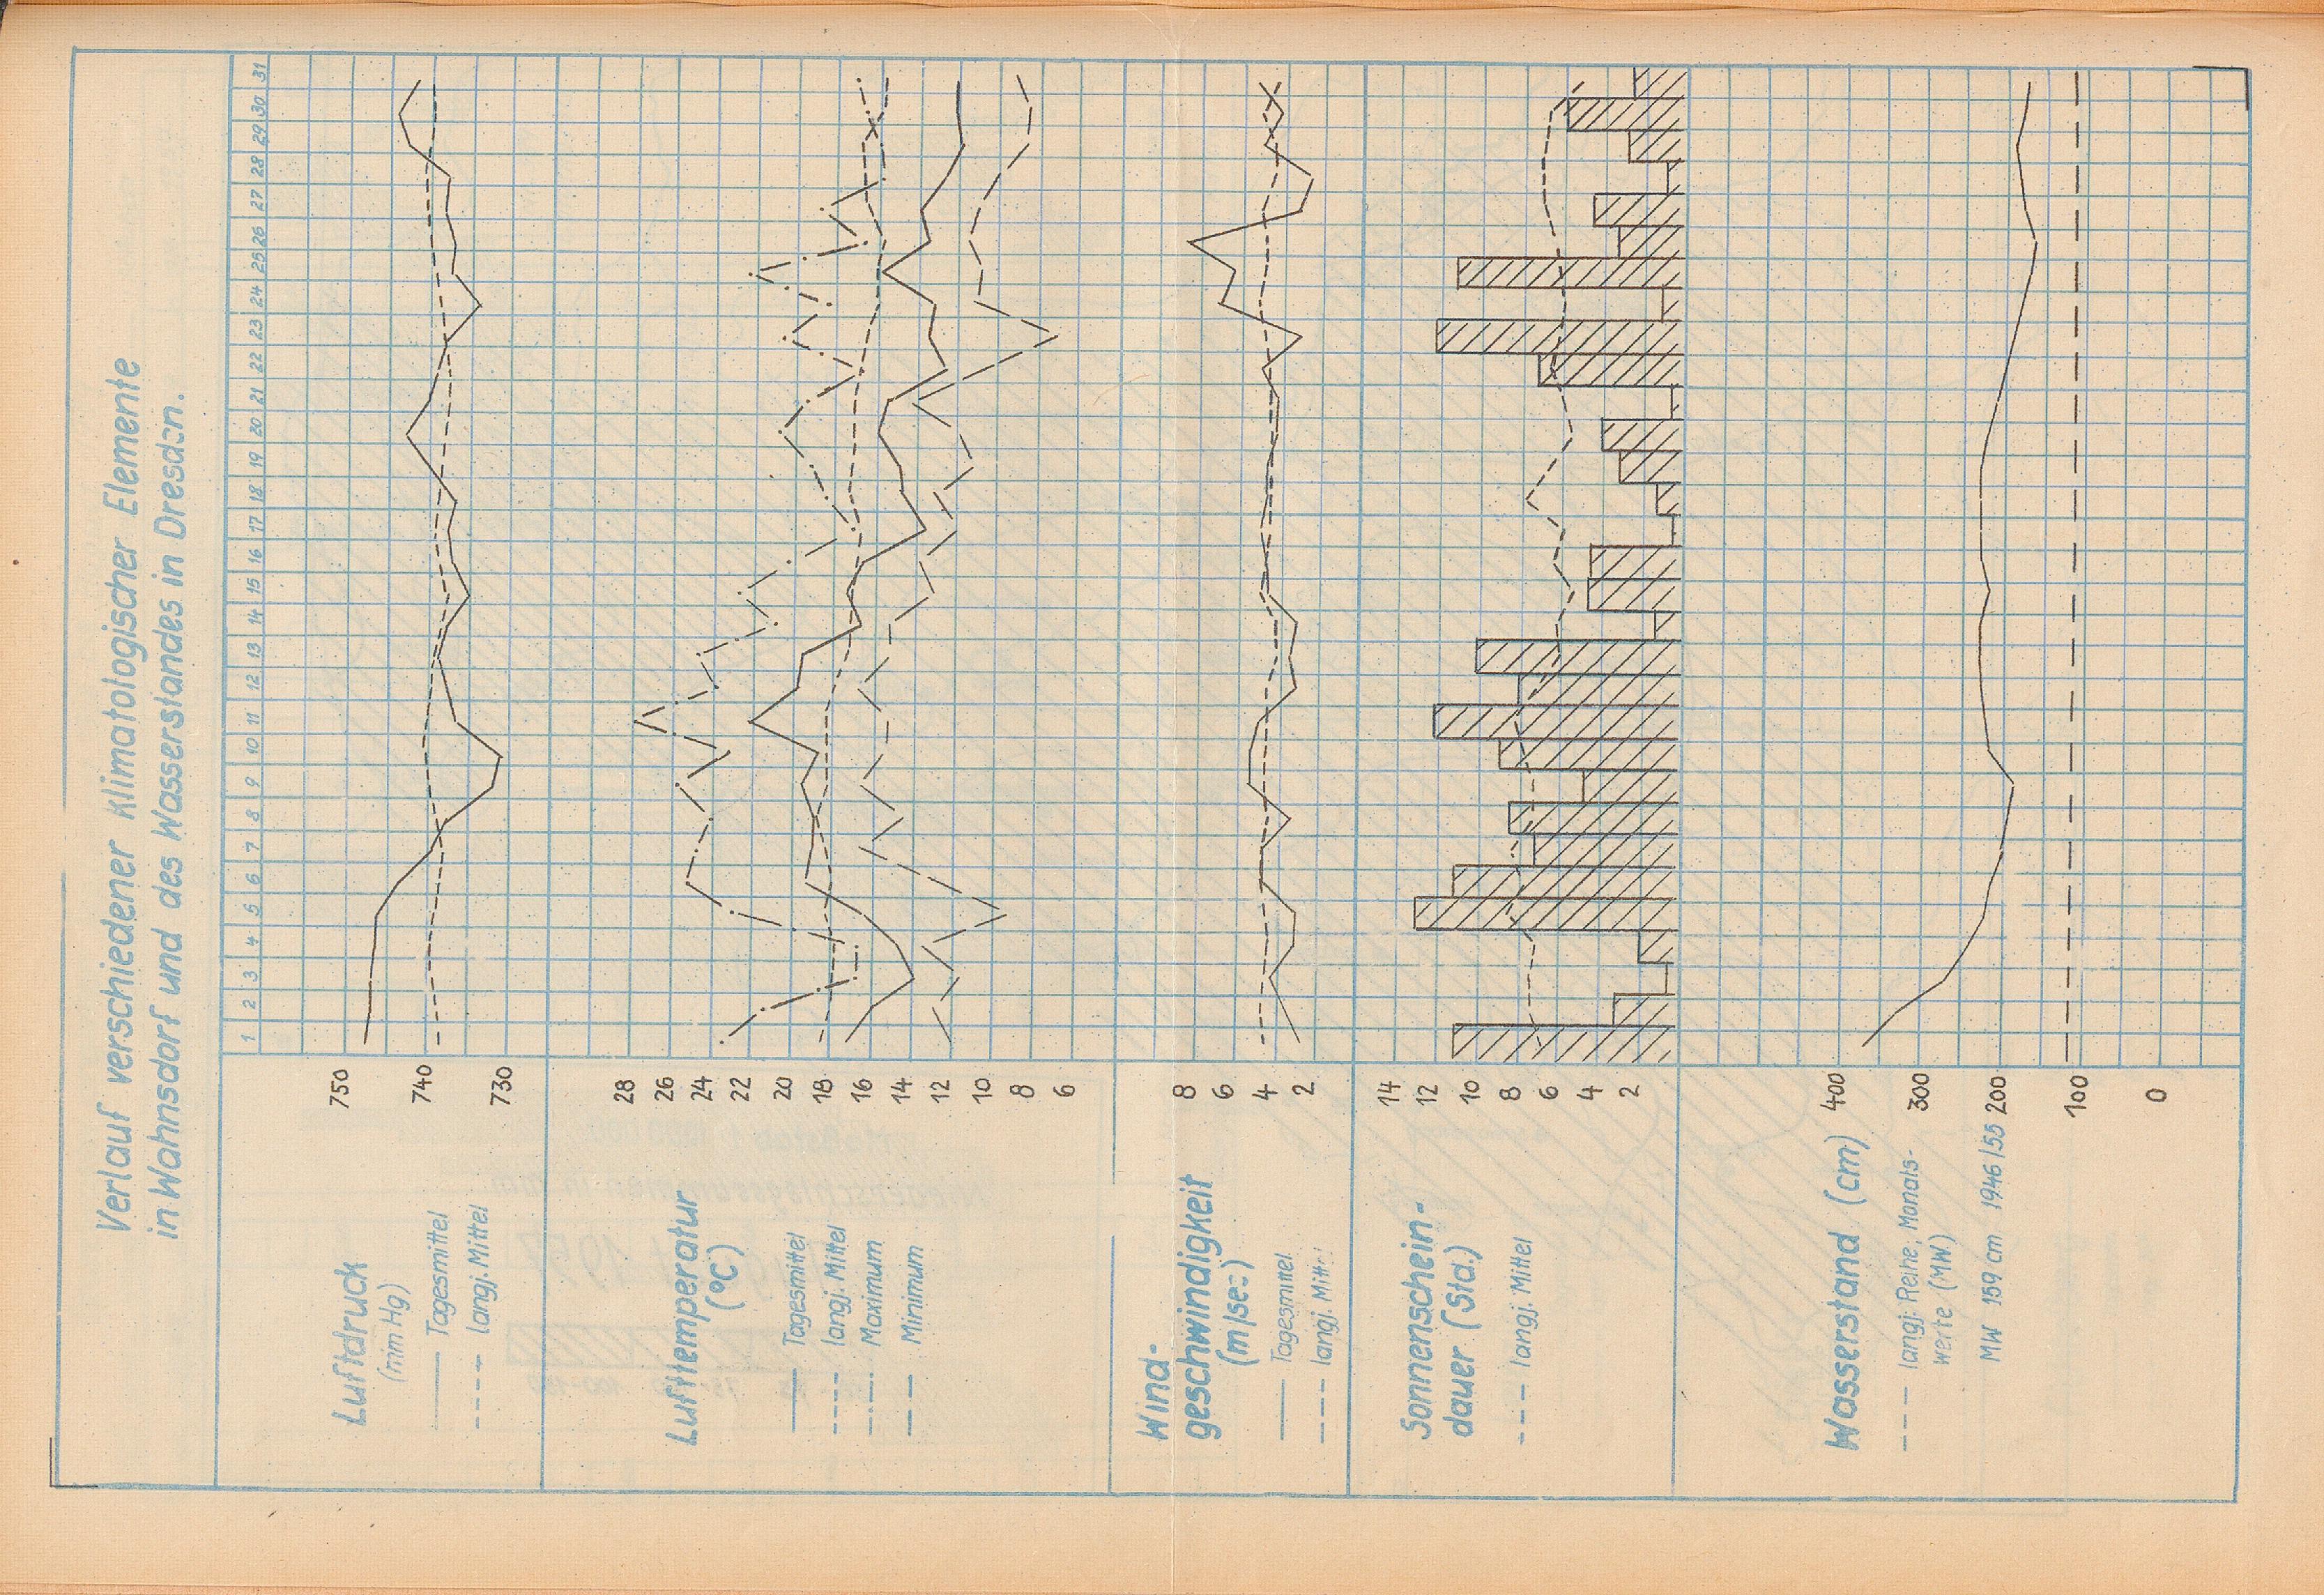 Verlauf verschiedener klimatologischer Elemente
in Wahnsdorf und des Wasserstandes in Dresden.
1 2 3 4 5 6 7 8 9 10 11 12 13 14 15 16 17 18 19 20 21 22 23 24 25 26 27 28 29 30 31
Luftdruck
(mm Hg)
Tagesmittel
langj. Mittel
750
740
730
Lufttemperatur
(°C)
Tagesmittel
langj. Mittel
Maximum
Minimum
28
26
24
22
20
18
16
14
12
10
8
6
Wind-
geschwindigkeit
(m/sec)
Tagesmittel
langj. Mittel
8
6
4
2
Sonnenschein-
dauer (Std.)
langj. Mittel
14
12
10
8
6
4
2
Wasserstand (cm)
langj. Reihe, Monats-
werte (MW)
MW 159 cm 1946/55
400
300
200
100
0